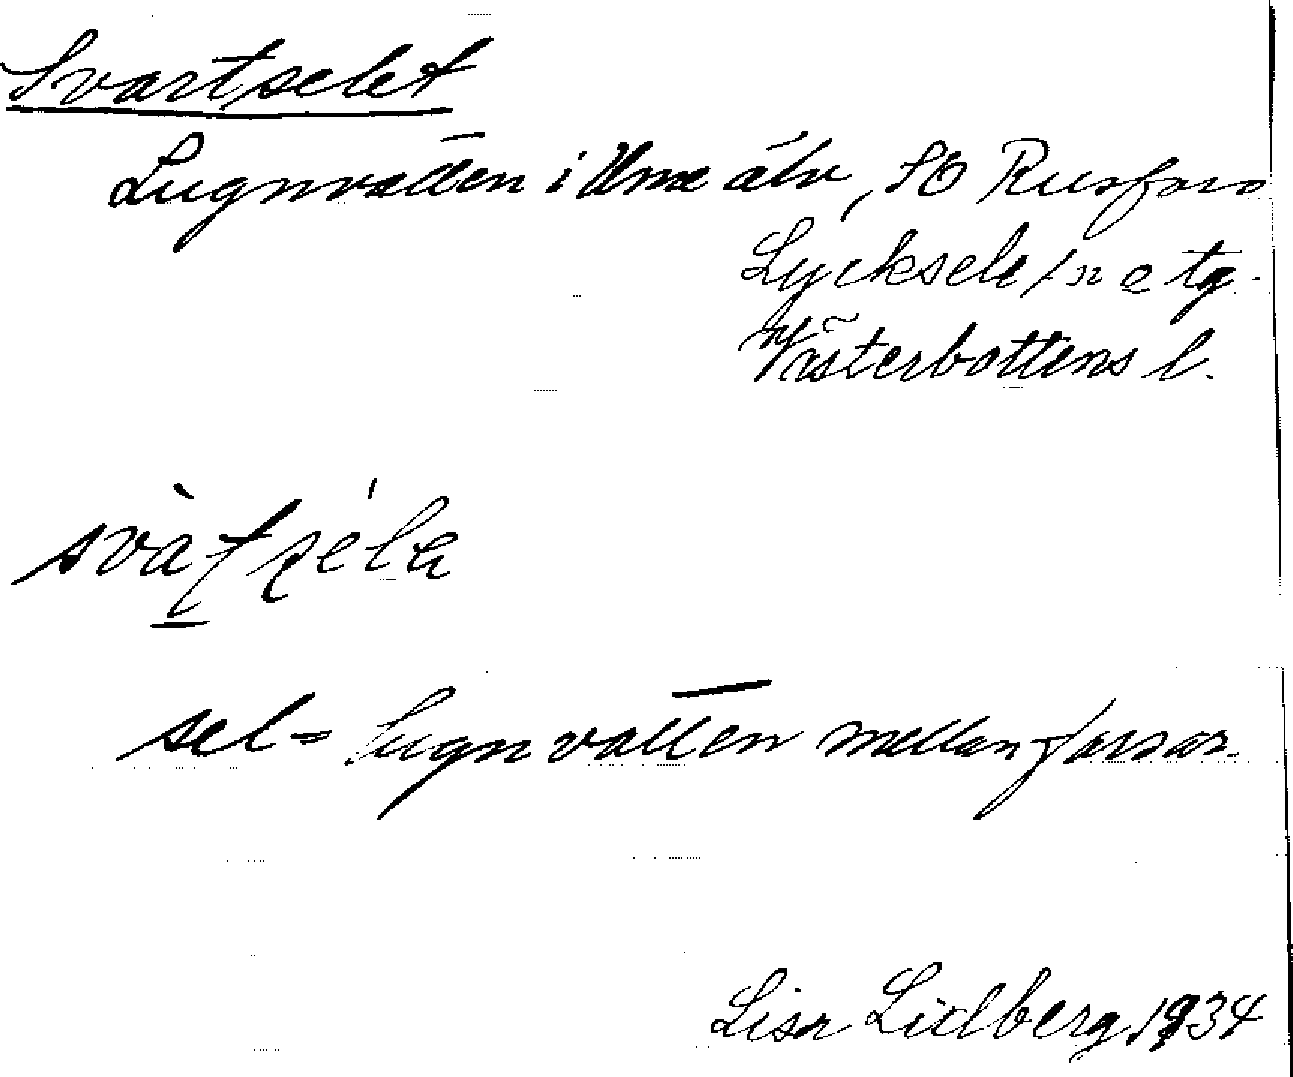 Svartselet
Lugnvatten i Ume älv, SO Rusfors
Lycksele
Västerbottens l.
sel = Lugnvatten mellan forsar.
Lisa Lidberg, 1934